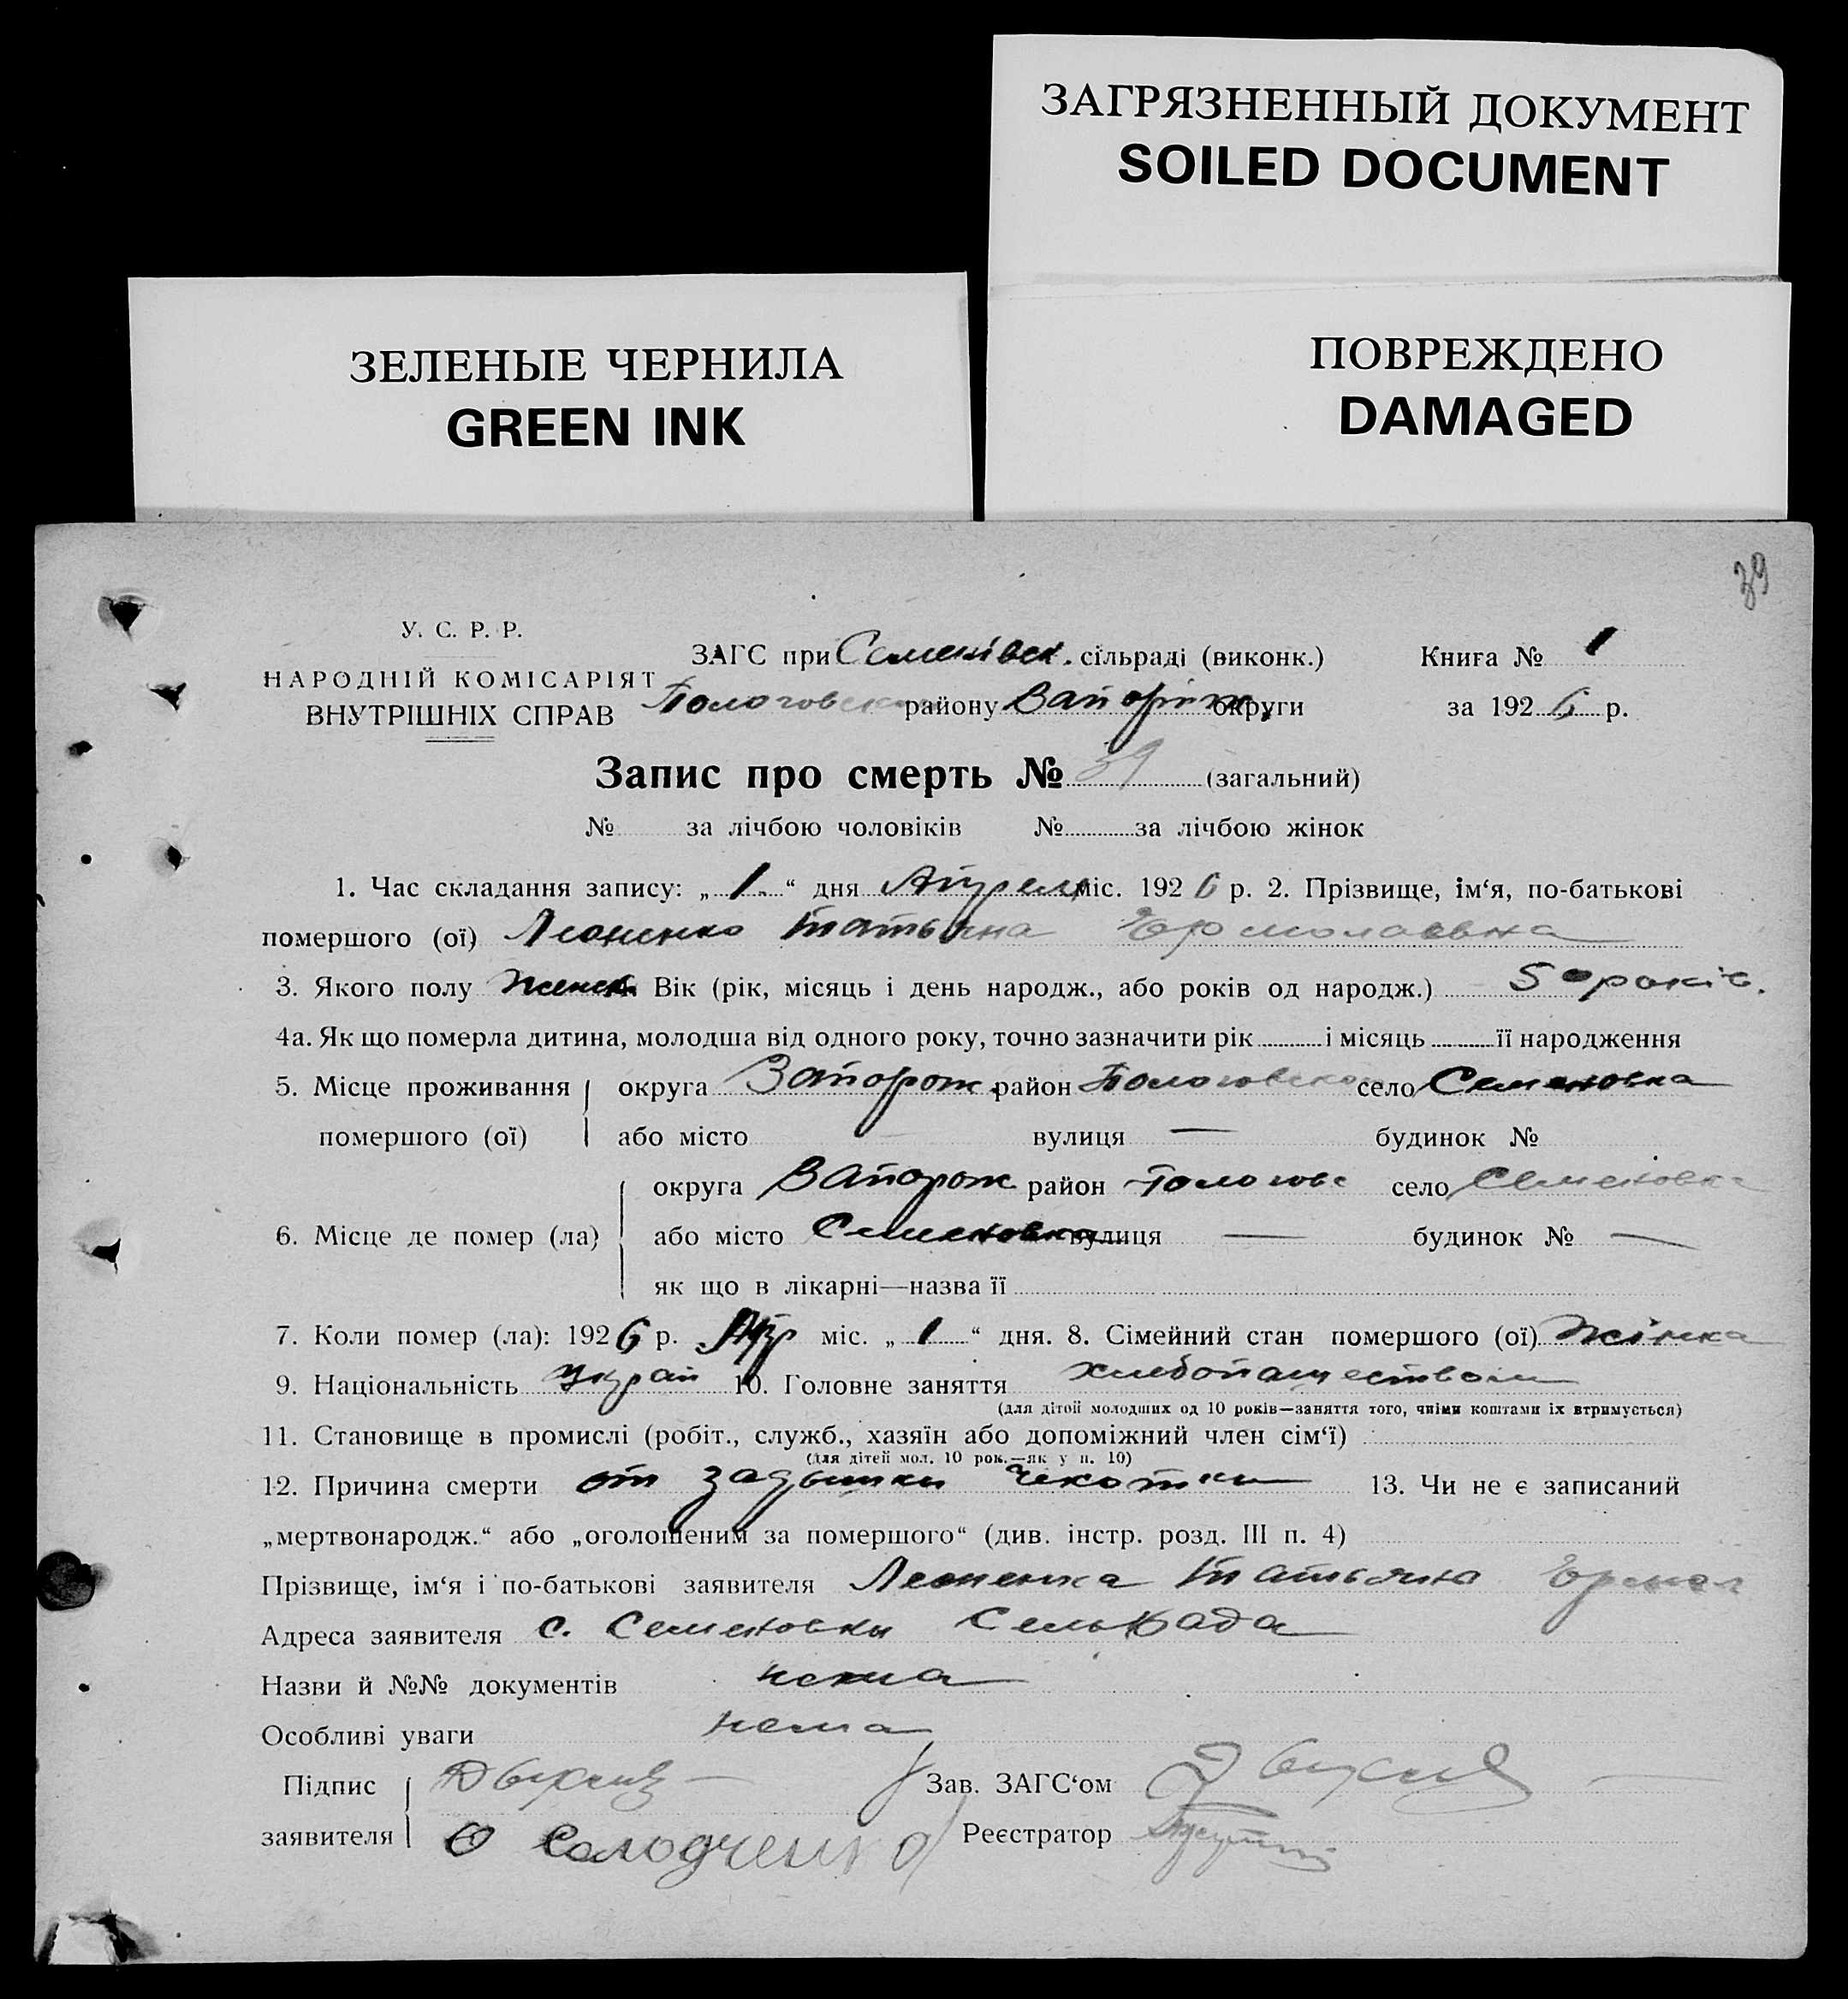 ЗАГРЯЗНЕННЫЙ ДОКУМЕНТ
SOILED DOCUMENT
ЗЕЛЕНЫЕ ЧЕРНИЛА
GREEN INK
ПОВРЕЖДЕНО
DAMAGED
39
У. С. Р. Р.
НАРОДНІЙ КОМІСАРІЯТ
ВНУТРІШНІХ СПРАВ
ЗАГС при Семенівск. сільраді (виконк.) Книга № 1
Пологовск району Запоріж. округи за 1926 р.
Запис про смерть № 39 (загальний)
№ за лічбою чоловіків № за лічбою жінок
1. Час складання запису: „1“ дня Апреля міс. 1926 р. 2. Прізвище, ім‘я, по-батькові
помершого (ої) Леоненко Татьяна Ермолаевна
3. Якого полу женск. Вік (рік, місяць і день народж., або років од народж.) 50 років.
4а. Як що померла дитина, молодша від одного року, точно зазначити рік і місяць її народження
5. Місце проживання округа Запорож район Пологовско село Семеновка
помершого (ої) або місто — вулиця — будинок №
округа Запорож район Пологовс село Семеновка
6. Місце де помер (ла) або місто Семеновка вулиця — будинок № —
як що в лікарні—назва її
7. Коли помер (ла): 1926 р. Апр міс. „1“ дня. 8. Сімейний стан помершого (ої) жінка
9. Національність Украй 10. Головне заняття хлебопашеством
(для дітой молодших од 10 років—заняття того, чиїми коштами їх втримується)
11. Становище в промислі (робіт., служб., хазяїн або допоміжний член сім‘ї)
(для дітей мол. 10 рок.—як у п. 10)
12. Причина смерти от задышки чехотки 13. Чи не є записаний
„мертвонародж.“ або „оголошеним за помершого“ (див. інстр. розд. III п. 4)
Прізвище, ім‘я і по-батькові заявителя Леоненка Татьяна Ермол
Адреса заявителя с. Семеновки СельРада
Назви й №№ документів нема
Особливі уваги нема
Підпис Зав. ЗАГС‘ом
заявителя Солодченко Реєстратор